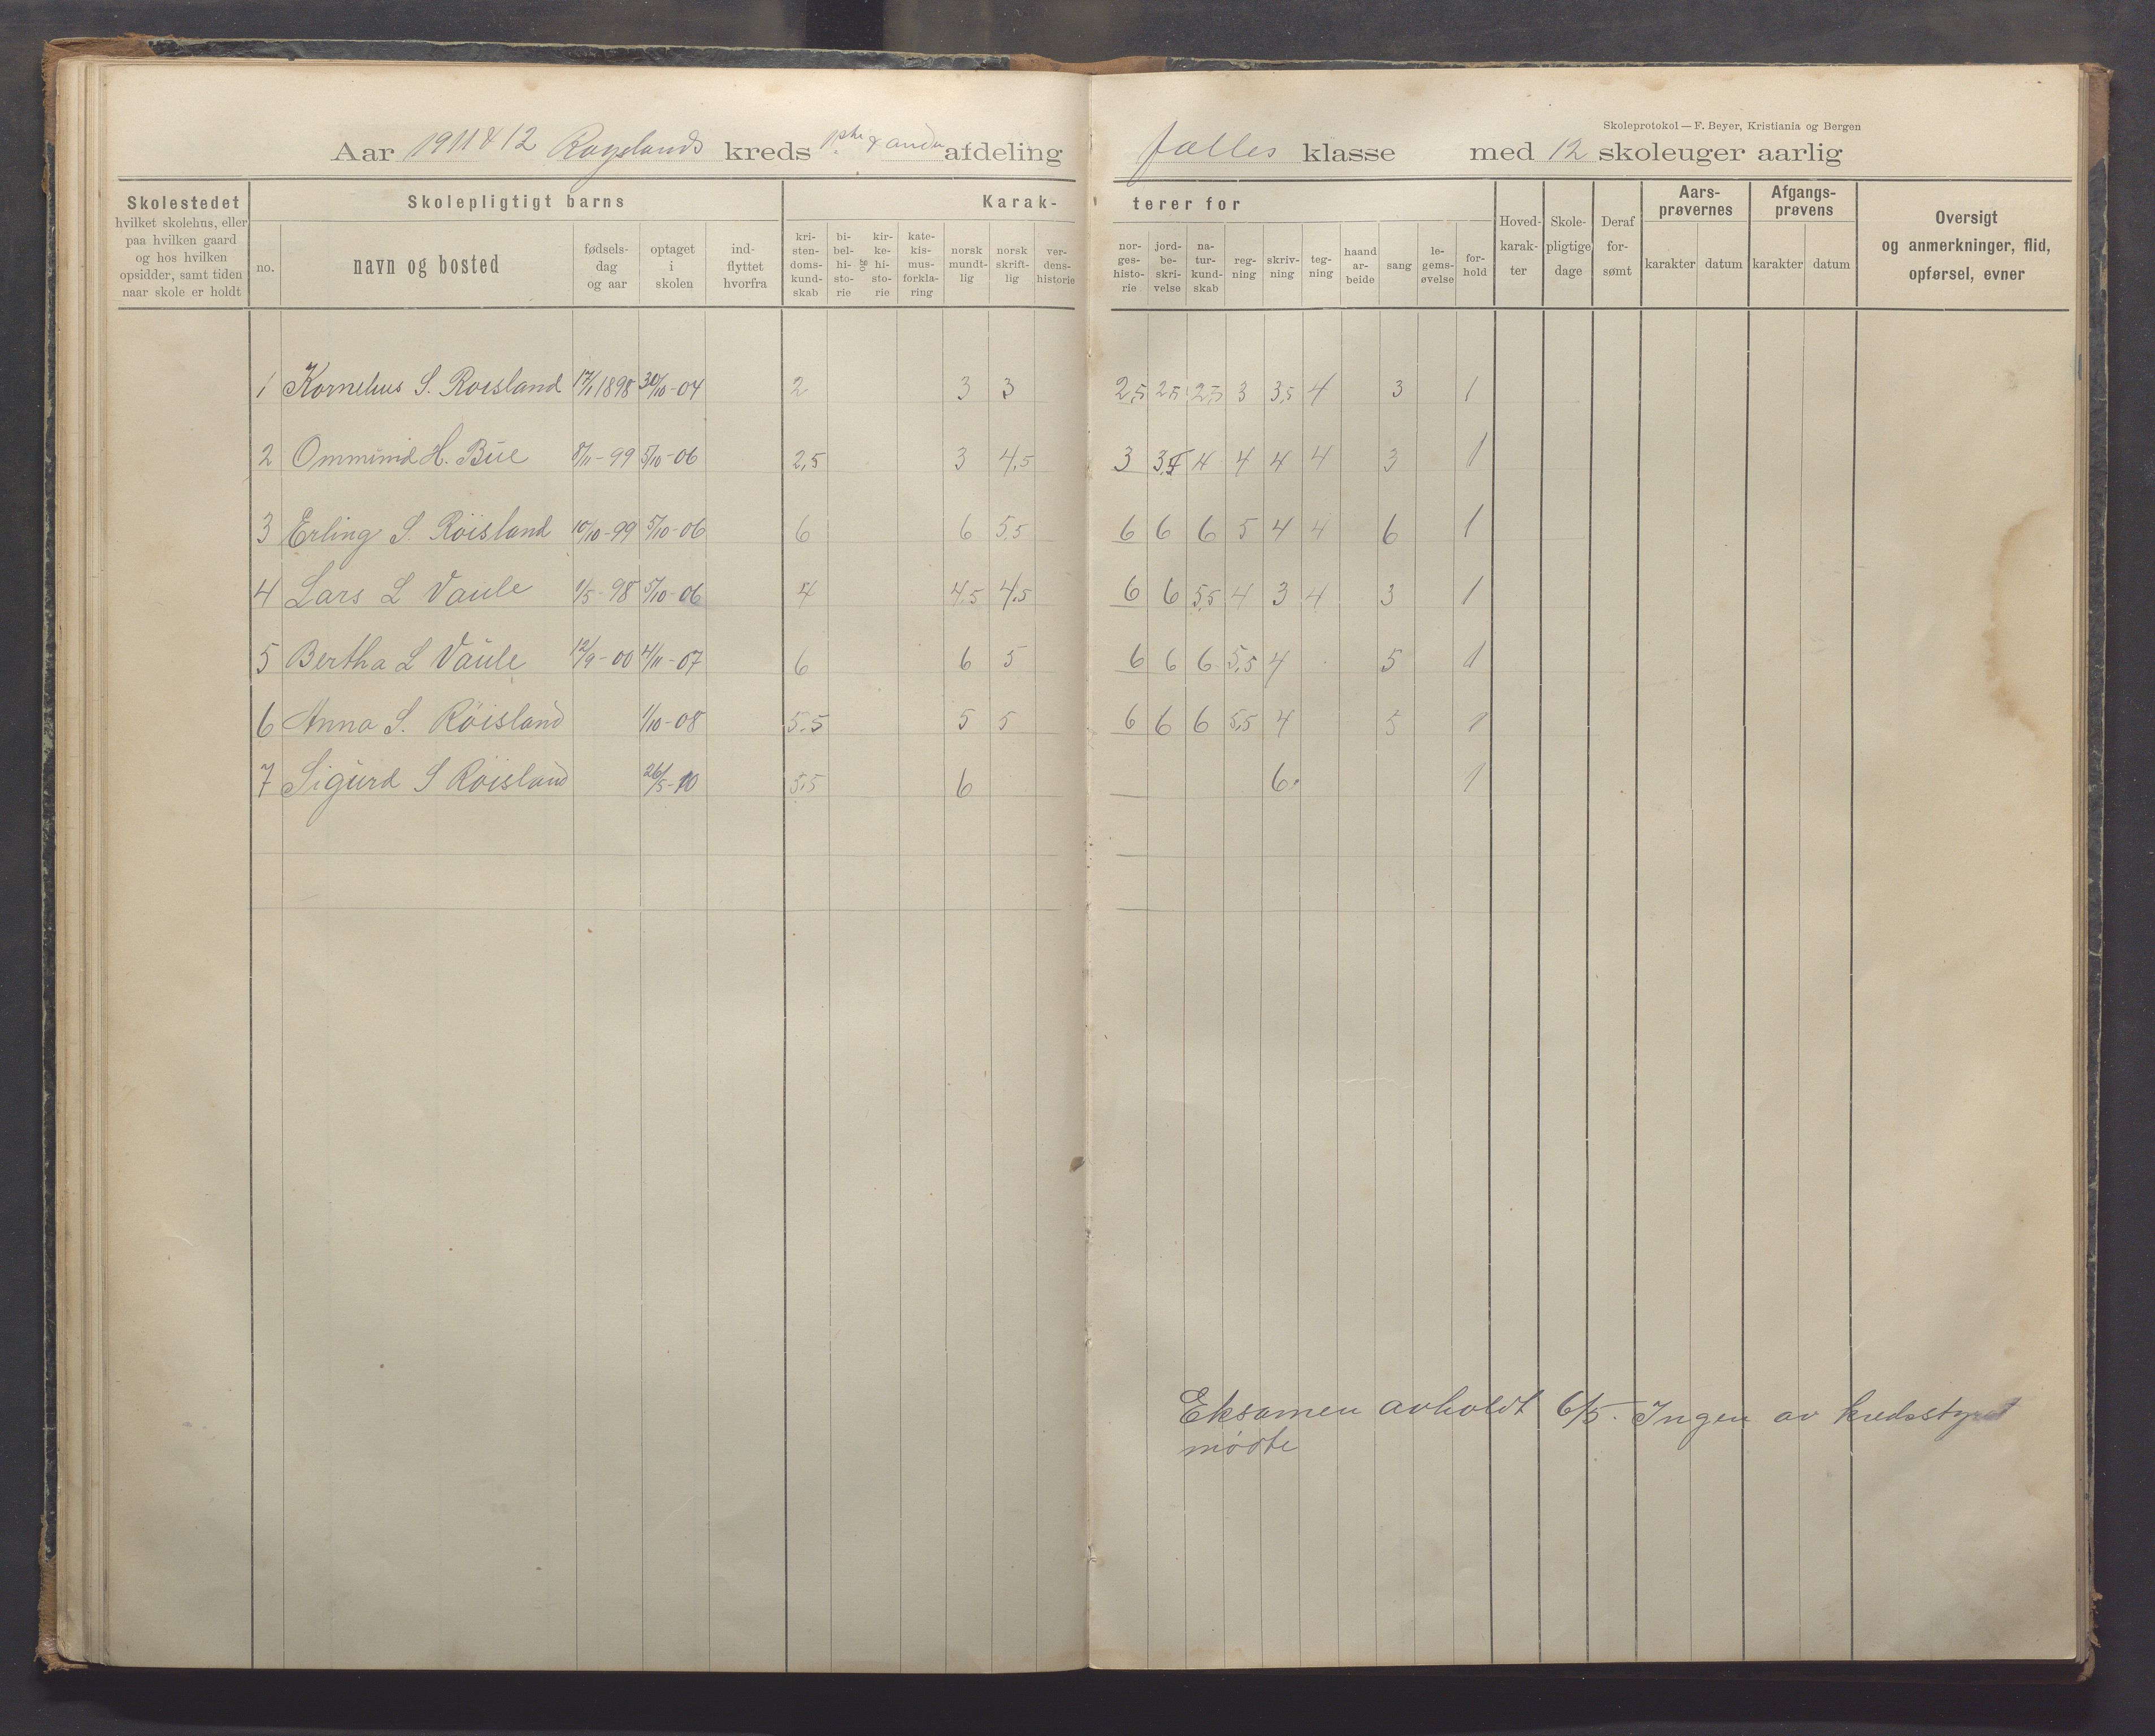 Skoleprotokol — F. Beyer, Kristiania og Bergen
Aar 1911 & 12 kreds afdeling fælles klasse med 12 skoleuger aarlig
Skolestedet hvilket skolehus, eller paa hvilken gaard og hos hvilken opsidder, samt tiden naar skole er holdt
Skolepligtigt barns
no. navn og bosted fødselsdag og aar optaget i skolen indflyttet hvorfra
Karakterer for
kristendomskundskab bibelhistorie og kirkehistorie katekismusforklaring norsk mundtlig norsk skriftlig verdenshistorie norgeshistorie jordbeskrivelse naturkundskab regning skrivning tegning haandarbeide sang legemsøvelse forhold
Hovedkarakter Skolepligtige dage Deraf forsømt
Aarsprøvernes karakter datum
Afgangsprøvens karakter datum
Oversigt og anmerkninger, flid, opførsel, evner
1 Kornelius S. Roisland 17/1 1898 30/10-04 2 3 3 2,5 2,5 2,5 3 3,5 4 3 1
2 Ommund H. Bue 8/11-99 5/10-06 2,5 3 4,5 3 4 4 4 4 3 1
3 Erling S. Röisland 10/10-99 5/10-06 6 6 5,5 6 6 6 5 4 4 6 1
4 Lars L Vaule 1/5-98 5/10-06 4 4,5 4,5 6 6 5,5 4 3 4 3 1
5 Bertha L Vaule 12/9-00 4/11-07 6 6 5 6 6 6 5,5 4 5 1
6 Anna S. Röisland 1/10-08 5,5 5 5 6 6 6 5,5 4 5 1
7 Sigurd S Röisland 26/5-10 5,5 6 6 1
Eksamen avholdt 6/5. Ingen av kredsstyret
mødte